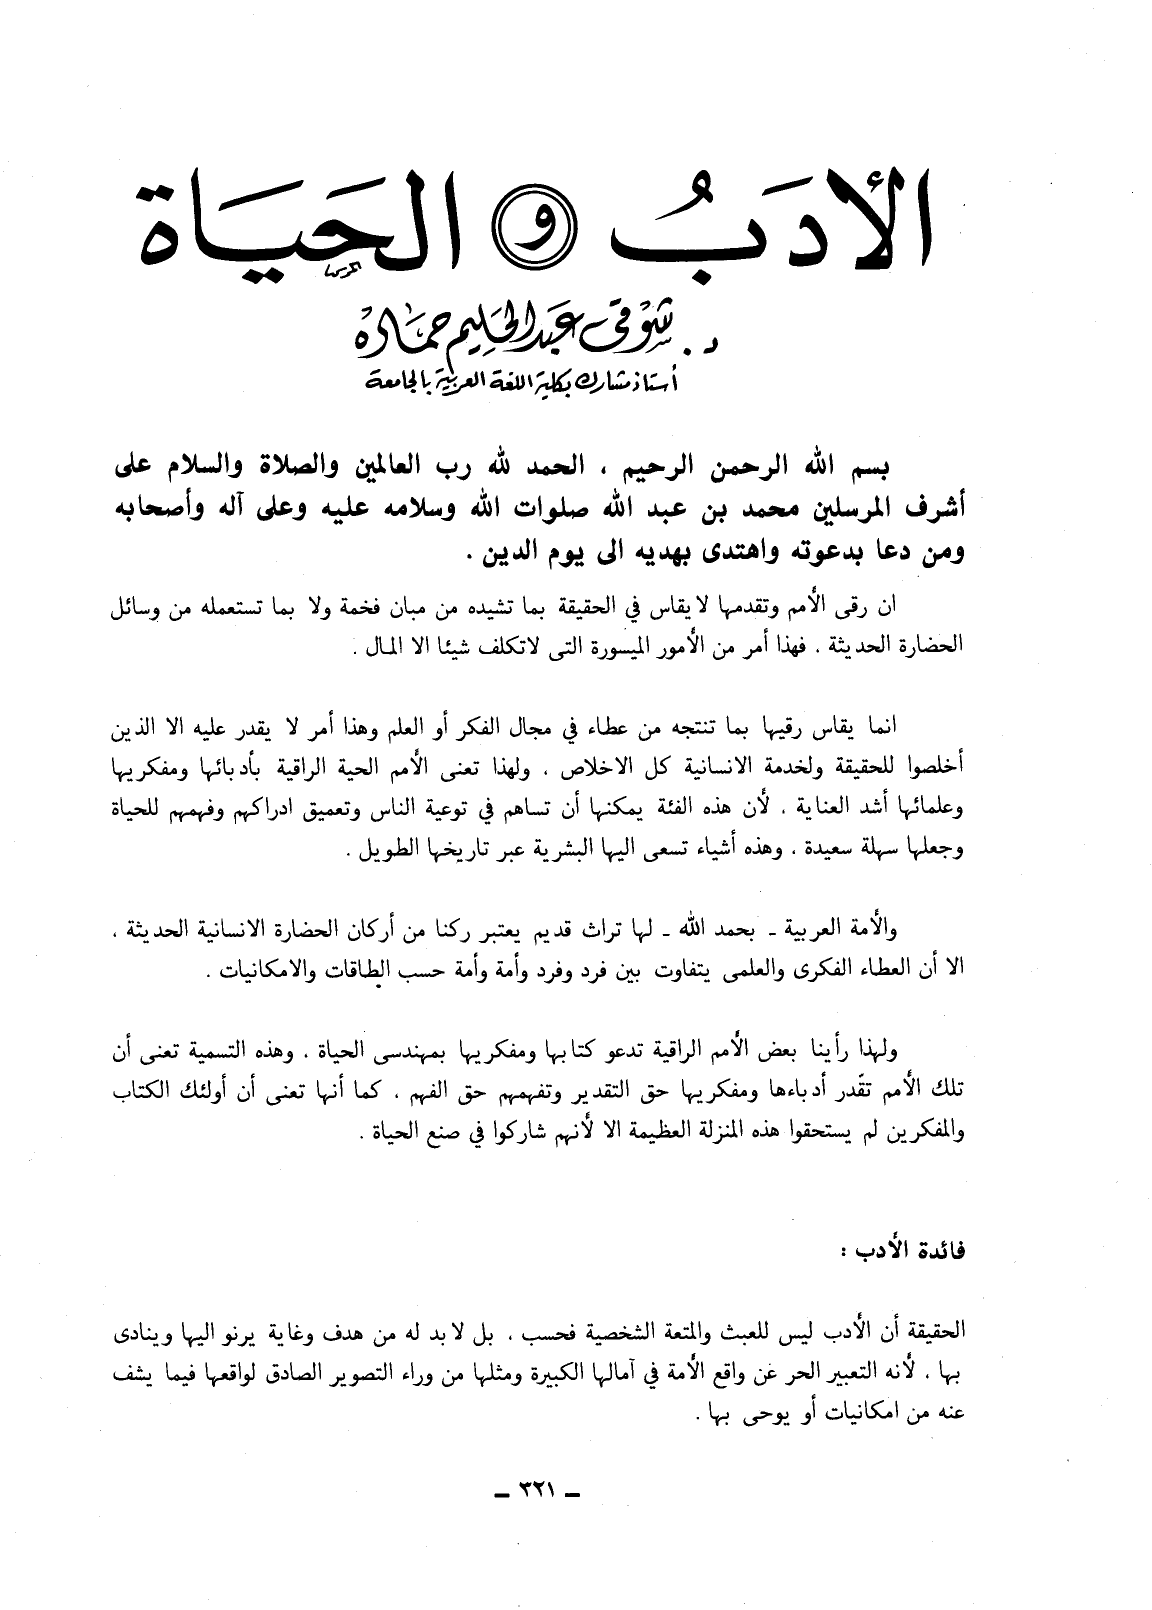 الأدَبُ و الحَيَاة
د. شوقى عبد الحليم حمادة
أستاذ مشارك بكلية اللغة العربية بالجامعة
بسم الله الرحمن الرحيم ، الحمد لله رب العالمين والصلاة والسلام على
أشرف المرسلين محمد بن عبد الله صلوات الله وسلامه عليه وعلى آله وأصحابه
ومن دعا بدعوته واهتدى بهديه الى يوم الدين .
ان رقى الأمم وتقدمها لا يقاس في الحقيقة بما تشيده من مبان فخمة ولا بما تستعمله من وسائل
الحضارة الحديثة . فهذا أمر من الأمور الميسورة التى لاتكلف شيئا الا المال .
انما يقاس رقيها بما تنتجه من عطاء في مجال الفكر أو العلم وهذا أمر لا يقدر عليه الا الذين
أخلصوا للحقيقة ولخدمة الانسانية كل الاخلاص ، ولهذا تعنى الأمم الحية الراقية بأدبائها ومفكريها
وعلمائها أشد العناية ، لأن هذه الفئة يمكنها أن تساهم في توعية الناس وتعميق ادراكهم وفهمهم للحياة
وجعلها سهلة سعيدة ، وهذه أشياء تسعى اليها البشرية عبر تاريخها الطويل .
والأمة العربية ـ بحمد الله ـ لها تراث قديم يعتبر ركنا من أركان الحضارة الانسانية الحديثة ،
الا أن العطاء الفكرى والعلمى يتفاوت بين فرد وفرد وأمة وأمة حسب الطاقات والامكانيات .
ولهذا رأينا بعض الأمم الراقية تدعو كتابها ومفكريها بمهندسى الحياة . وهذه التسمية تعنى أن
تلك الأمم تقّدر أدباءها ومفكريها حق التقدير وتفهمهم حق الفهم ، كما أنها تعنى أن أولئك الكتاب
والمفكرين لم يستحقوا هذه المنزلة العظيمة الا لأنهم شاركوا في صنع الحياة .
فائدة الأدب :
الحقيقة أن الأدب ليس للعبث والمتعة الشخصية فحسب ، بل لابد له من هدف وغاية يرنو اليها وينادى
بها ، لأنه التعبير الحر عن واقع الأمة في آمالها الكبيرة ومثلها من وراء التصوير الصادق لواقعها فيما يشف
عنه من امكانيات أو يوحى بها .
ـ ٣٢١ ـ